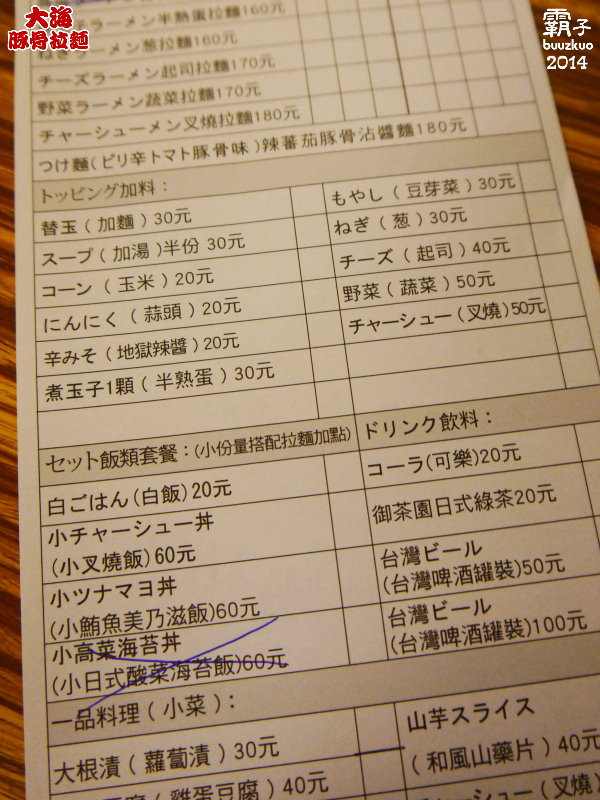 大海
豚骨拉麵
霸子
buuzkuo
2014
ラーメン半熟蛋拉麵160元
ねぎラーメン葱拉麵160元
チーズラーメン起司拉麵170元
野菜ラーメン蔬菜拉麵170元
チャーシューメン叉燒拉麵180元
つけ麵(ピリ辛トマト豚骨味)辣蕃茄豚骨沾醬麵180元
トッピング加料:
替玉(加麵)30元
スープ(加湯)半份 30元
コーン(玉米)20元
にんにく(蒜頭)20元
辛みそ(地獄辣醬)20元
煮玉子1顆(半熟蛋)30元
もやし(豆芽菜)30元
ねぎ(葱)30元
チーズ(起司)40元
野菜(蔬菜)50元
チャーシュー(叉燒)50元
セット飯類套餐:(小份量搭配拉麵加點)
白ごはん(白飯)20元
小チャーシュー丼
(小叉燒飯)60元
小ツナマヨ丼
(小鮪魚美乃滋飯)60元
小高菜海苔丼
(小日式酸菜海苔飯)60元
ドリンク飲料:
コーラ(可樂)20元
御茶園日式綠茶20元
台灣ビール
(台灣啤酒罐裝)50元
台灣ビール
(台灣啤酒罐裝)100元
一品料理(小菜):
大根漬(蘿蔔漬)30元
(雞蛋豆腐)40元
山芋スライス
(和風山藥片)40元
チャーシュー(叉燒)